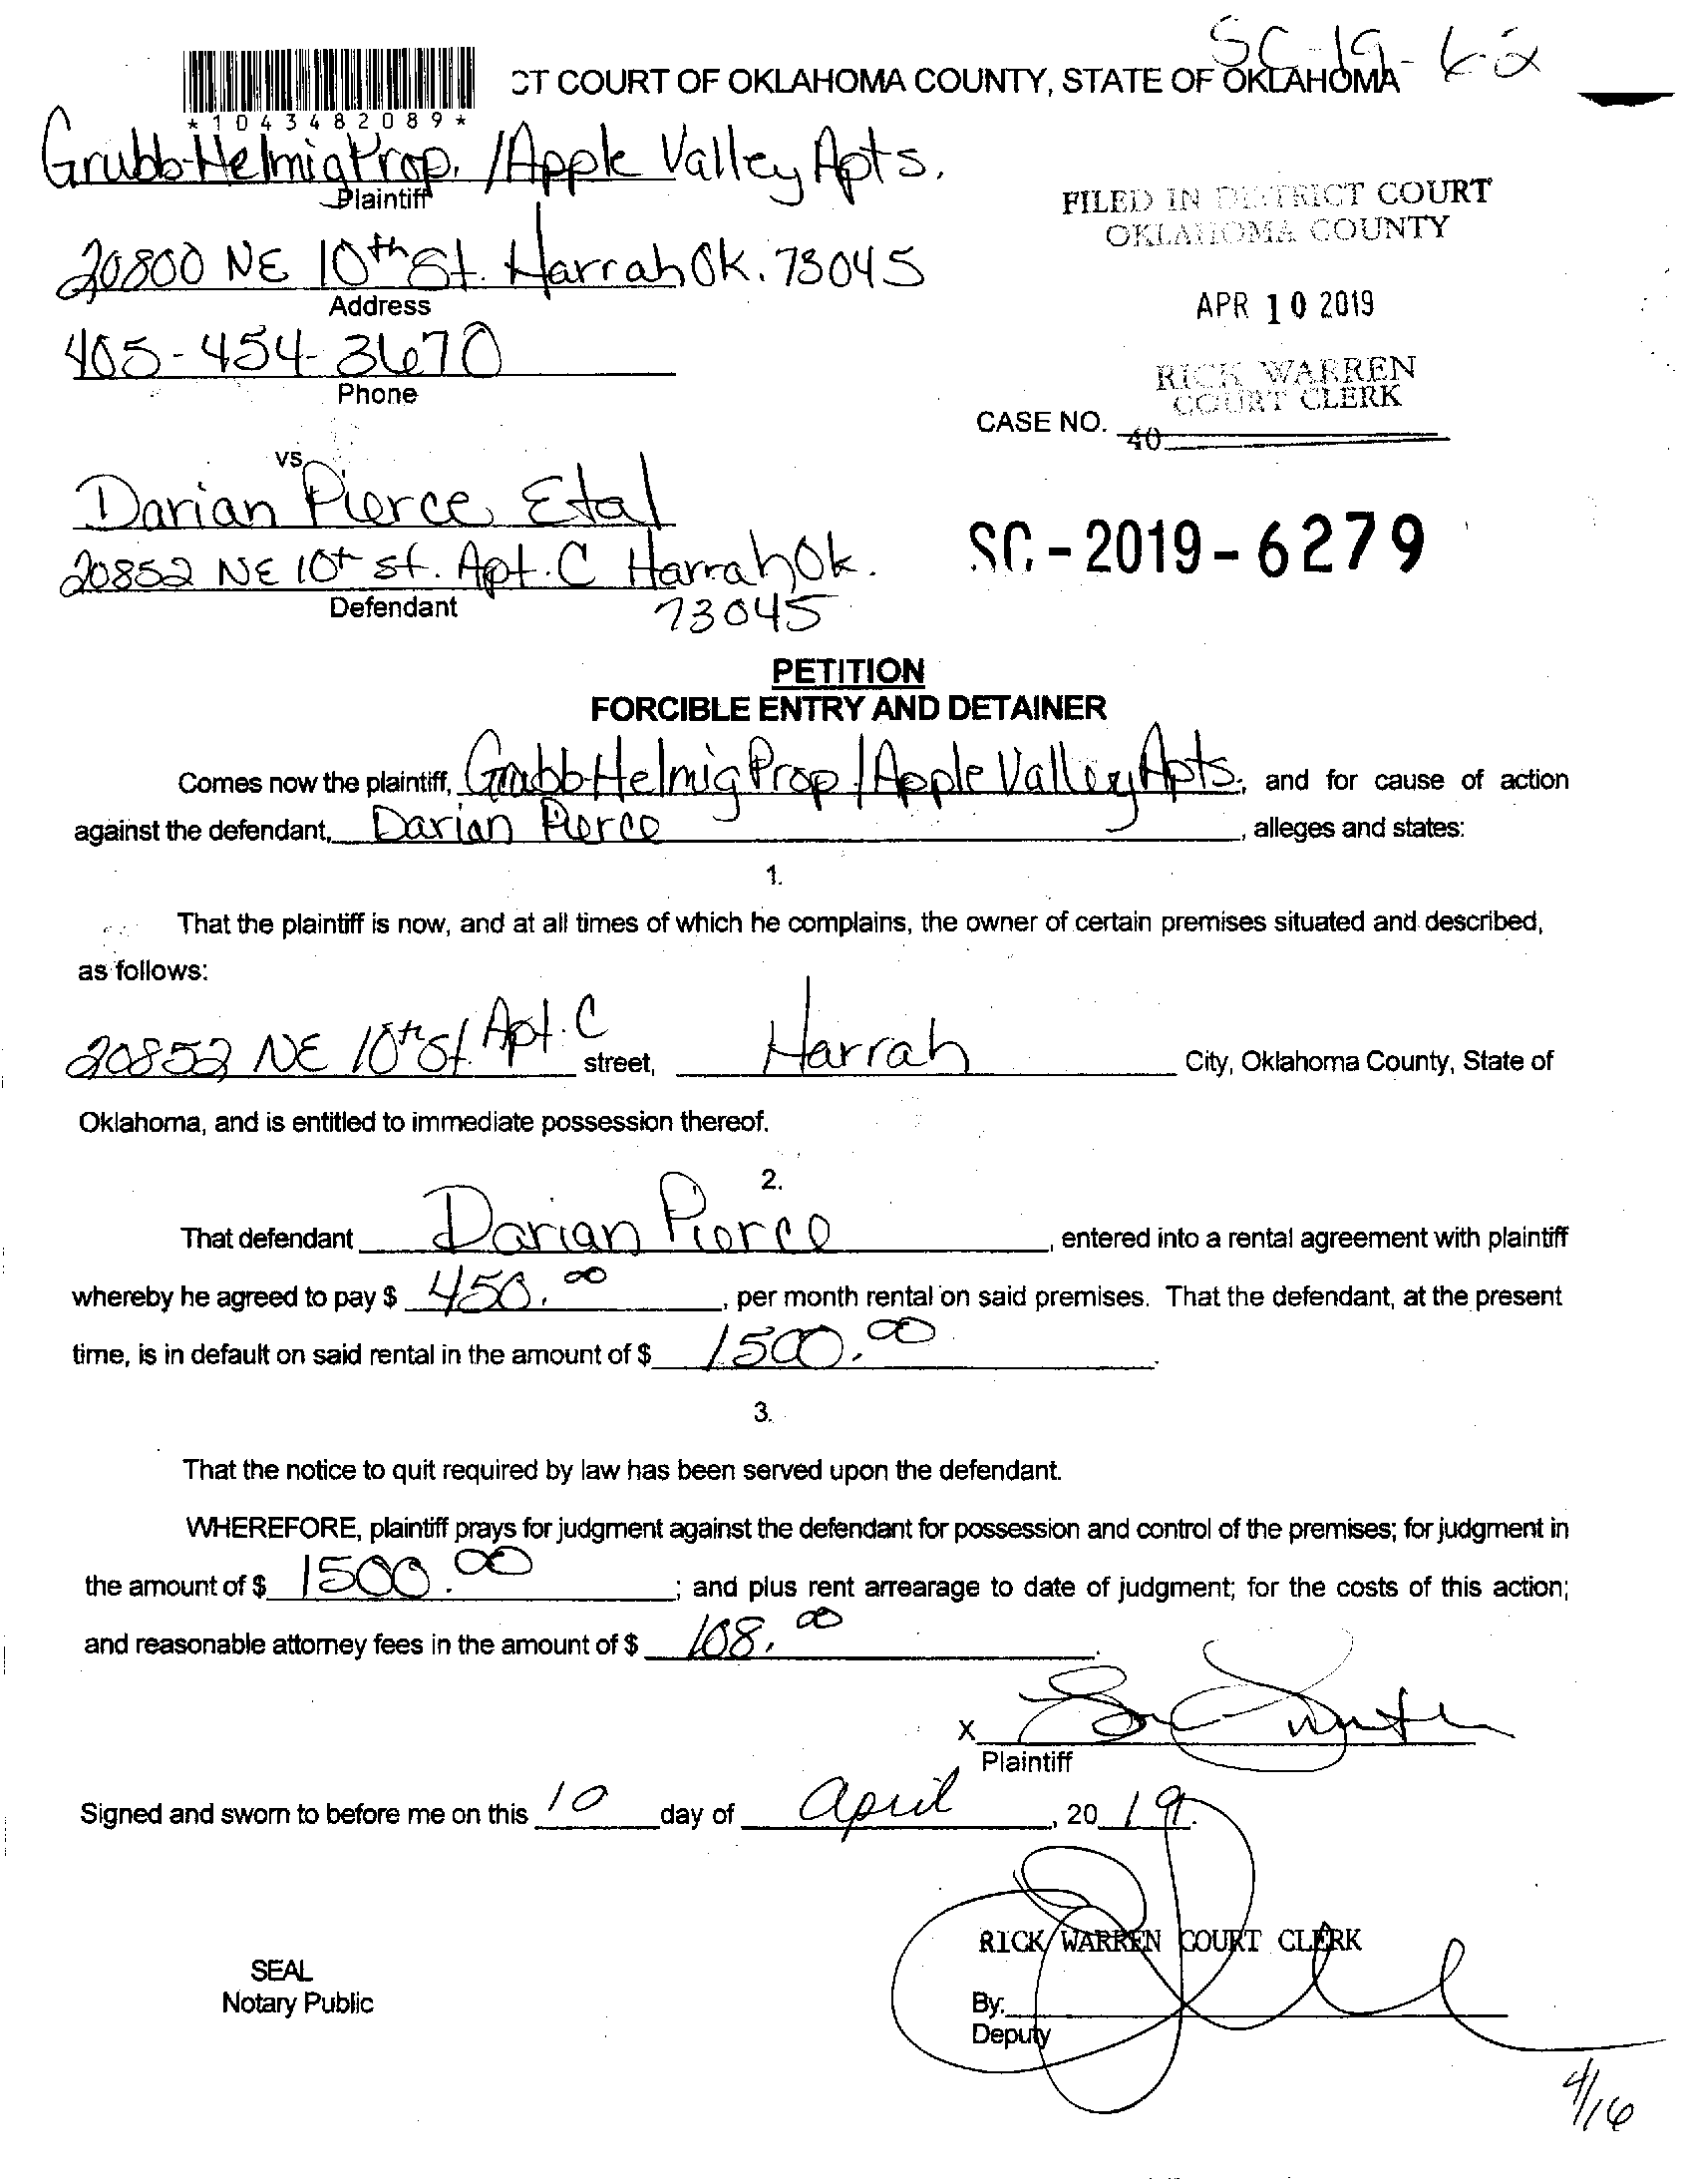 SC-19-62
CT COURT OF OKLAHOMA COUNTY, STATE OF OKLAHOMA
*1043482089*
Grubb-Helmig Prop. / Apple Valley Apts.
Plaintiff
FILED IN DISTRICT COURT
OKLAHOMA COUNTY
20800 NE 10th St. Harrah Ok. 73045
Address
APR 10 2019
405-454-3670
Phone
RICK WARREN
COURT CLERK
CASE NO.
40
vs
Darian Pierce Etal
20852 NE 10th st. Apt. C Harrah Ok.
73045
Defendant
SC-2019-6279
PETITION
FORCIBLE ENTRY AND DETAINER
Comes now the plaintiff, Grubb-Helmig Prop / Apple Valley Apts., and for cause of action
against the defendant, Darian Pierce, alleges and states:
1.
That the plaintiff is now, and at all times of which he complains, the owner of certain premises situated and described,
as follows:
20852 NE 10th St. Apt. C street, Harrah City, Oklahoma County, State of
Oklahoma, and is entitled to immediate possession thereof.
2.
That defendant Darian Pierce, entered into a rental agreement with plaintiff
whereby he agreed to pay $ 450.00, per month rental on said premises. That the defendant, at the present
time, is in default on said rental in the amount of $ 1500.00.
3.
That the notice to quit required by law has been served upon the defendant.
WHEREFORE, plaintiff prays for judgment against the defendant for possession and control of the premises; for judgment in
the amount of $ 1500.00; and plus rent arrearage to date of judgment; for the costs of this action;
and reasonable attorney fees in the amount of $ 108.00.
X
Plaintiff
Signed and sworn to before me on this 10 day of April, 2019.
RICK WARREN COURT CLERK
SEAL
Notary Public
By:
Deputy
4/16